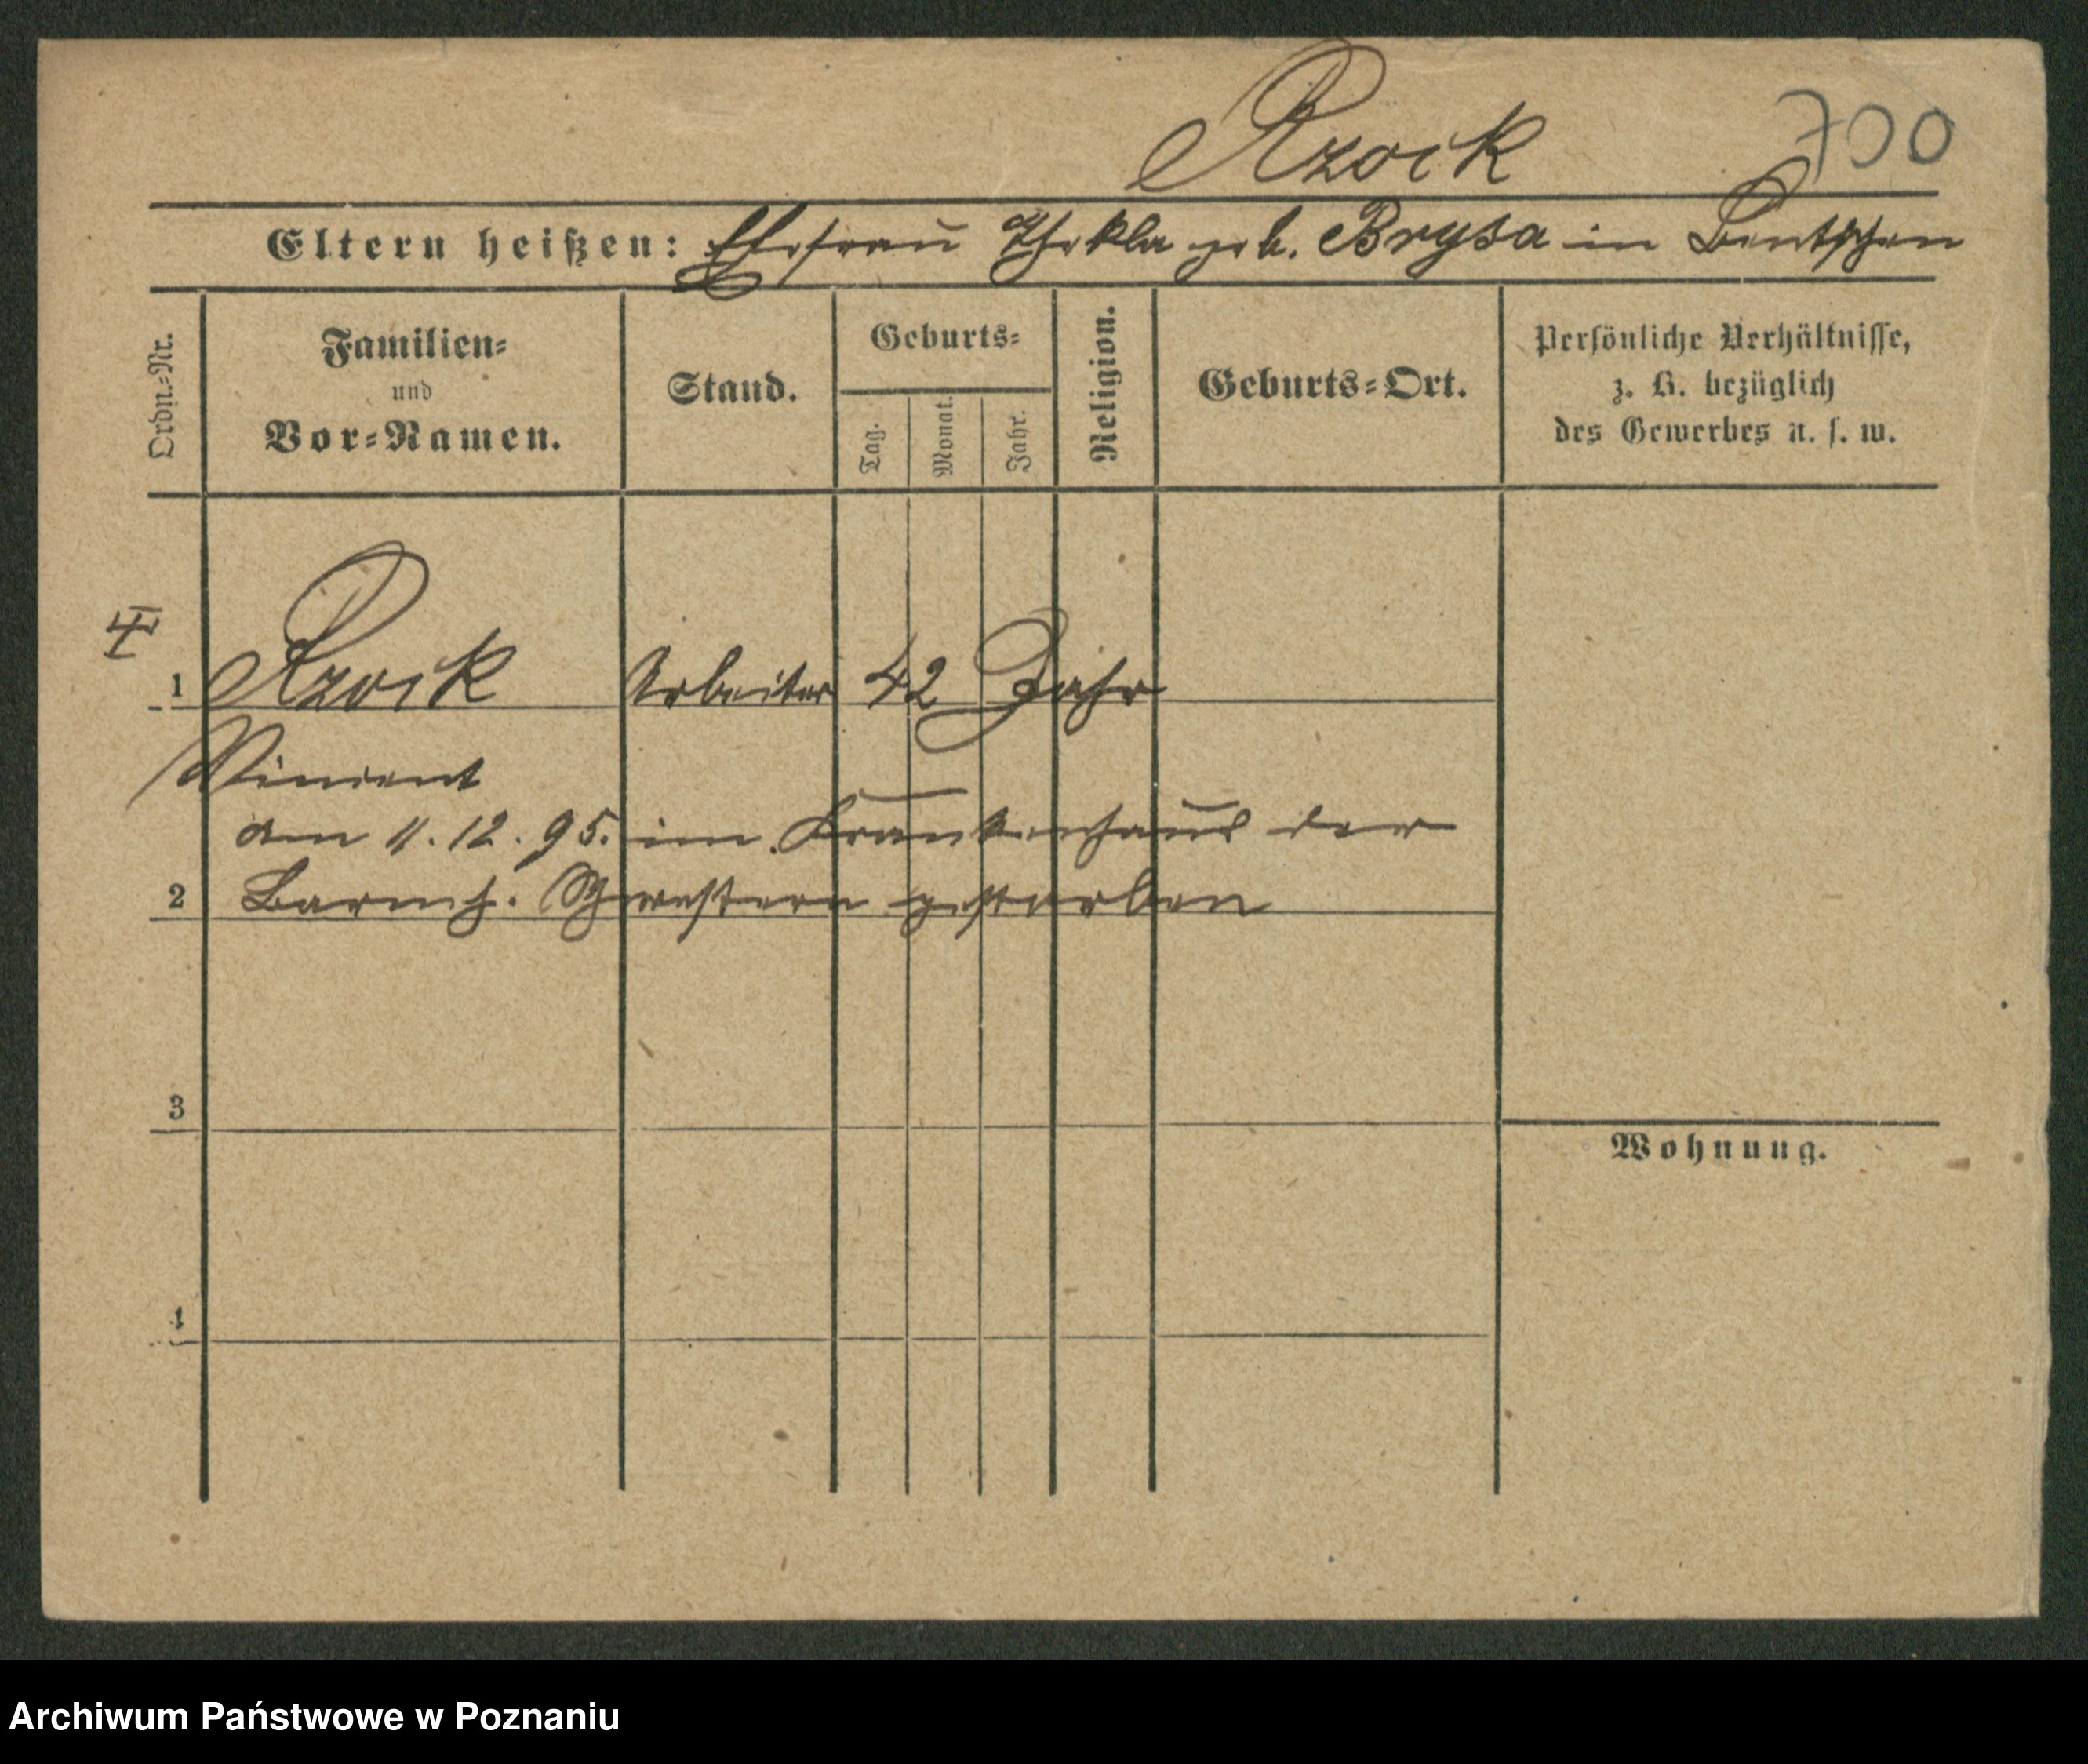 Rzoik
700
Eltern heißen: Ehefrau Thekla geb. Brysa in Bentschen
Ordn.-Nr.
Familien-
und
Vor-Namen.
Stand.
Geburts-
Tag.
Monat.
Jahr.
Religion.
Geburts-Ort.
Persönliche Verhältnisse,
z. B. bezüglich
des Gewerbes u. s. w.
1 Rzoik Arbeiter 42 Jahr
Vincent
am 11.12.95. im Krankenhaus der
2 Barmh. Schwestern gestorben
3
Wohnung.
4
Archiwum Państwowe w Poznaniu